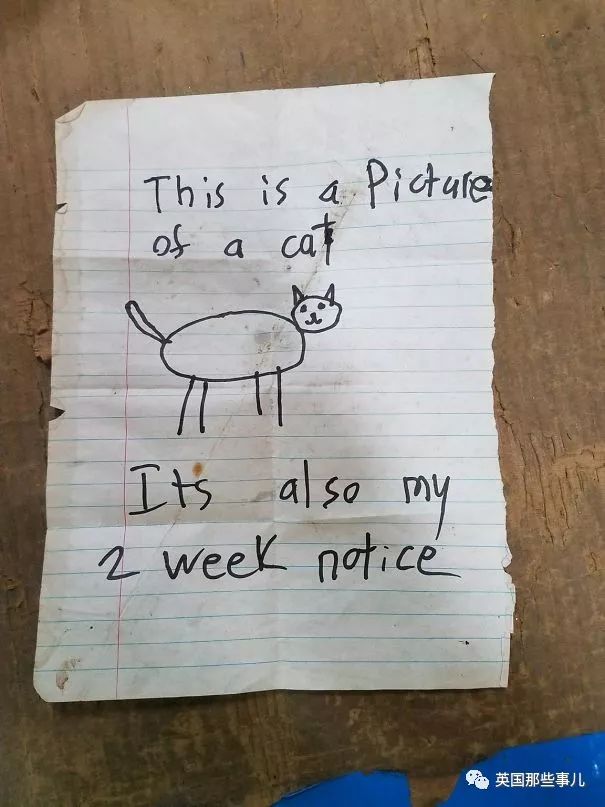 This is a Picture
of a cat
Its also my
2 week notice
英国那些事儿